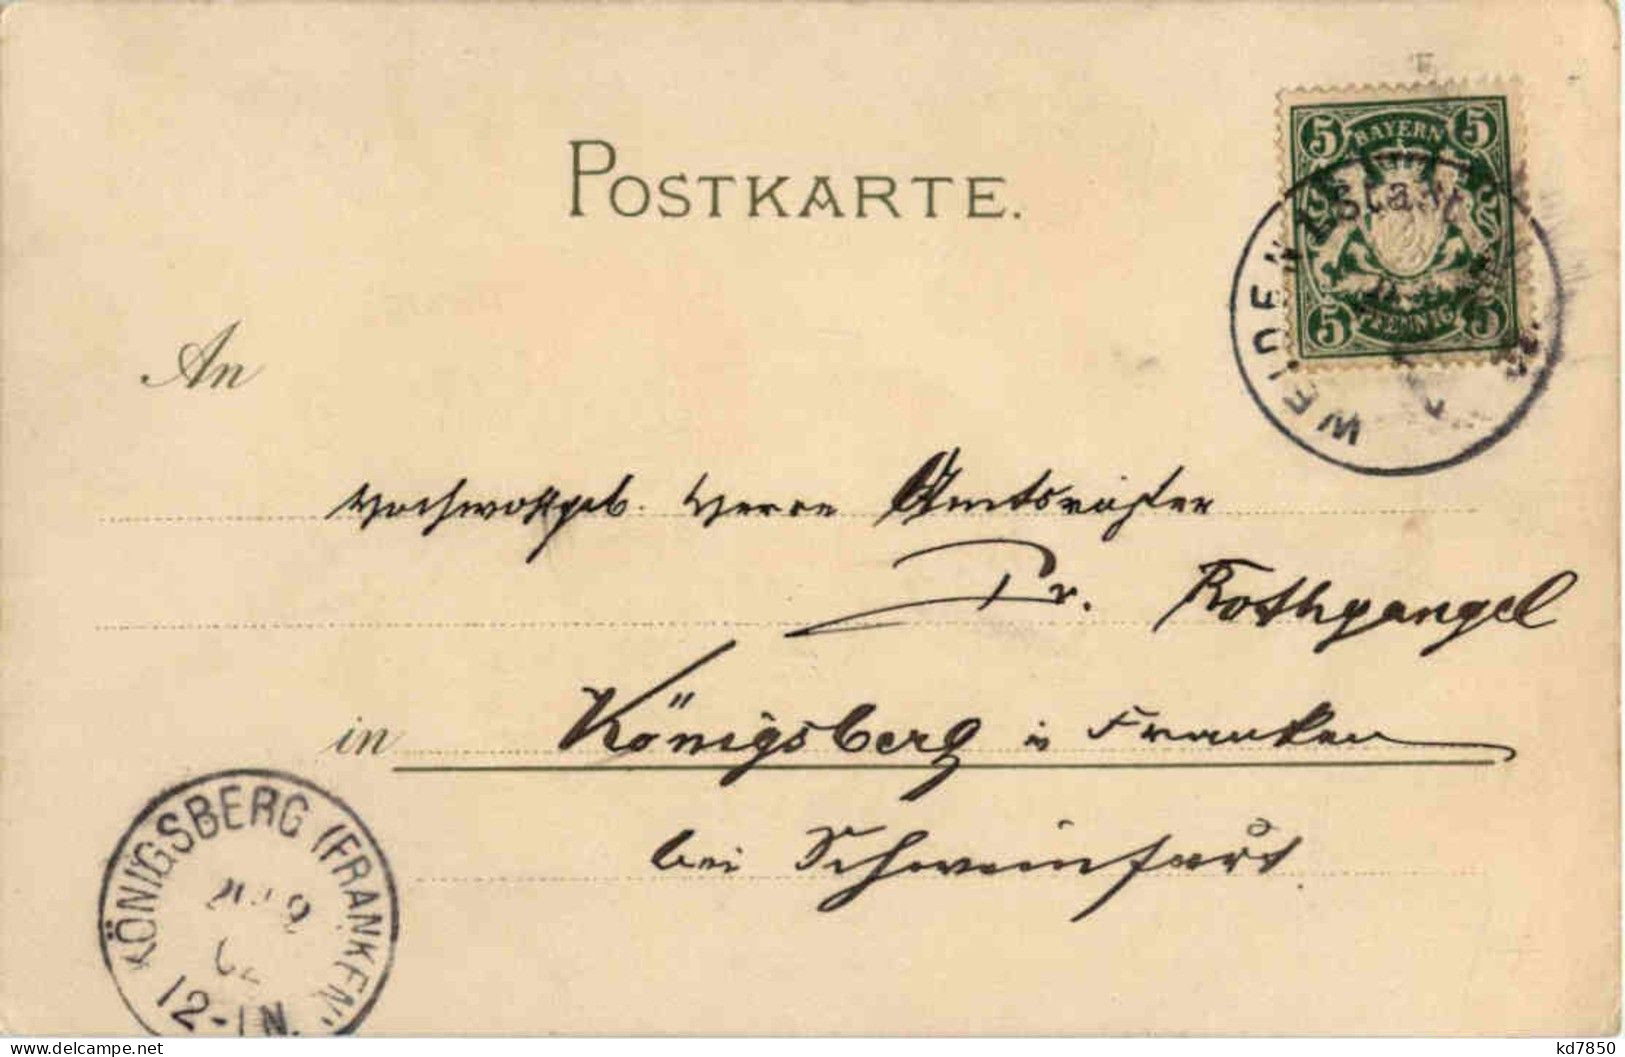 POSTKARTE.
5 BAYERN 5
5 PFENNIG 5
WEIDEN Stadt
An
Hochwohlgeb. Herrn Amtsrichter
Dr. Rothgangel
in Königsberg i Franken
bei Schweinfurt.
KÖNIGSBERG (FRANKEN)
12-1N.
delcampe.net
kd7850